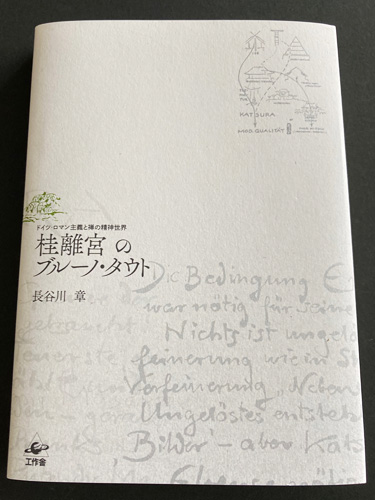 KATSURA
MOD. QUALITÄT
ドイツ・ロマン主義と禅の精神世界
桂離宮の
ブルーノ・タウト
長谷川 章
Die Bedingung E
war nötig für seine
gebraucht
Nichts ist ungelö
feinerung wie in St
Verfeinerung „Neben
Ungelöstes entsteh
Bilder - aber Kats
工作舎